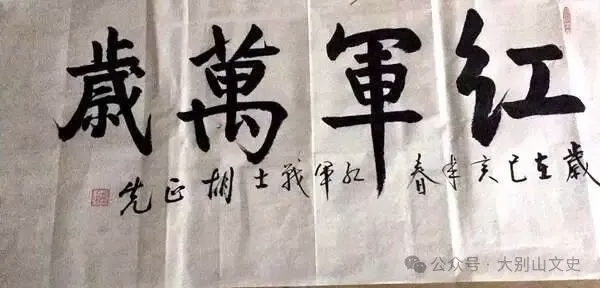 红軍萬歲
歲在己亥季春 红軍战士胡正先
公众号 · 大别山文史